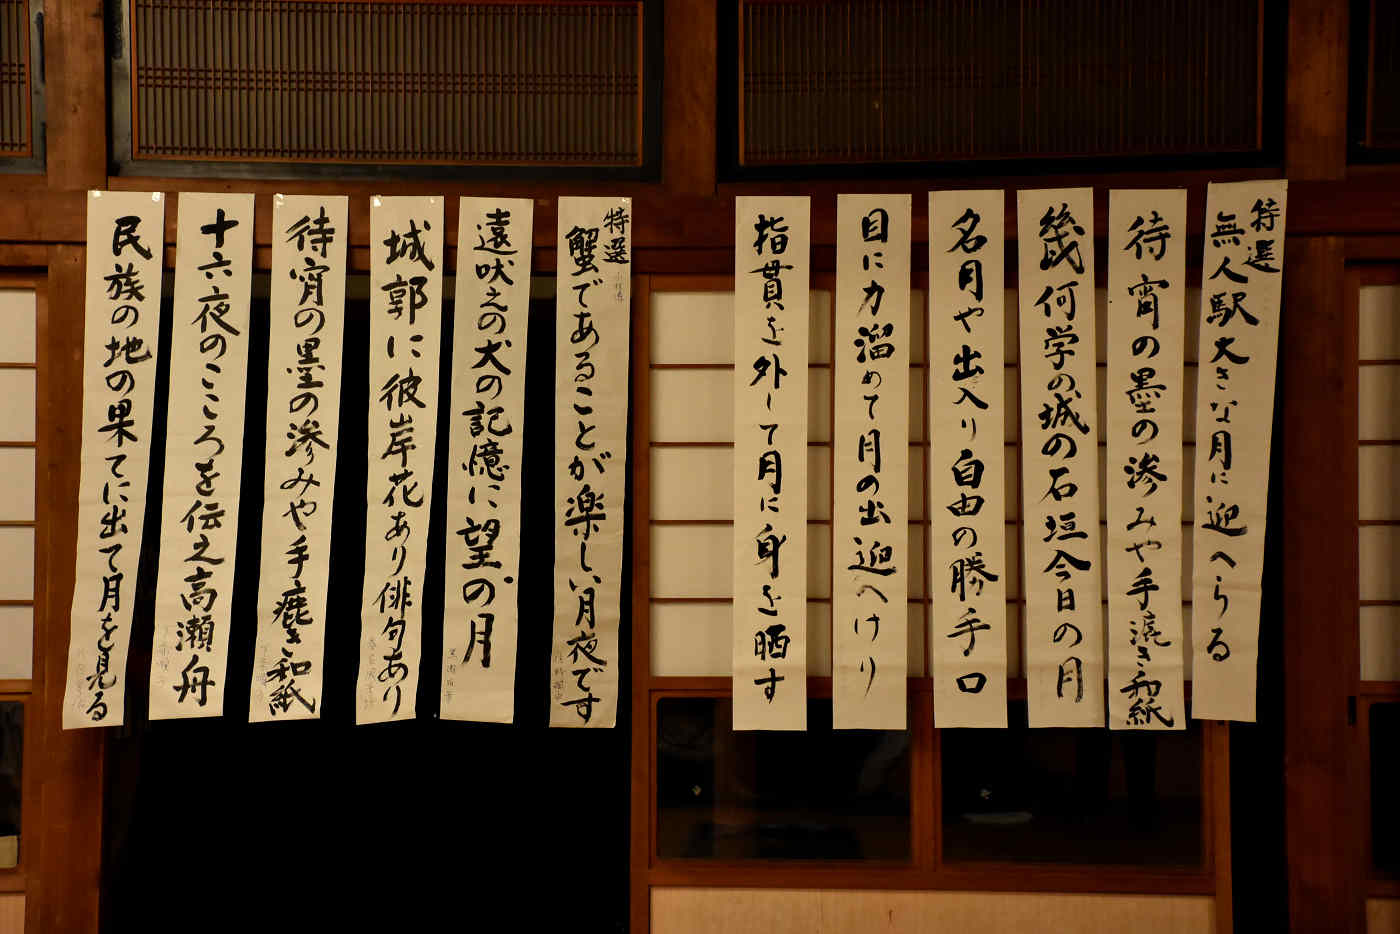 特選
無人駅大きな月に迎へらる
待宵の墨の滲みや手漉き和紙
幾何学の城の石垣今日の月
名月や出入り自由の勝手口
目に力溜めて月の出迎へけり
指貫を外して月に身を晒す
特選
蟹であることが楽しい月夜です
遠吠えの犬の記憶に望の月
城郭に彼岸花あり俳句あり
待宵の墨の滲みや手漉き和紙
十六夜のこころを伝え高瀬舟
民族の地の果てに出て月を見る